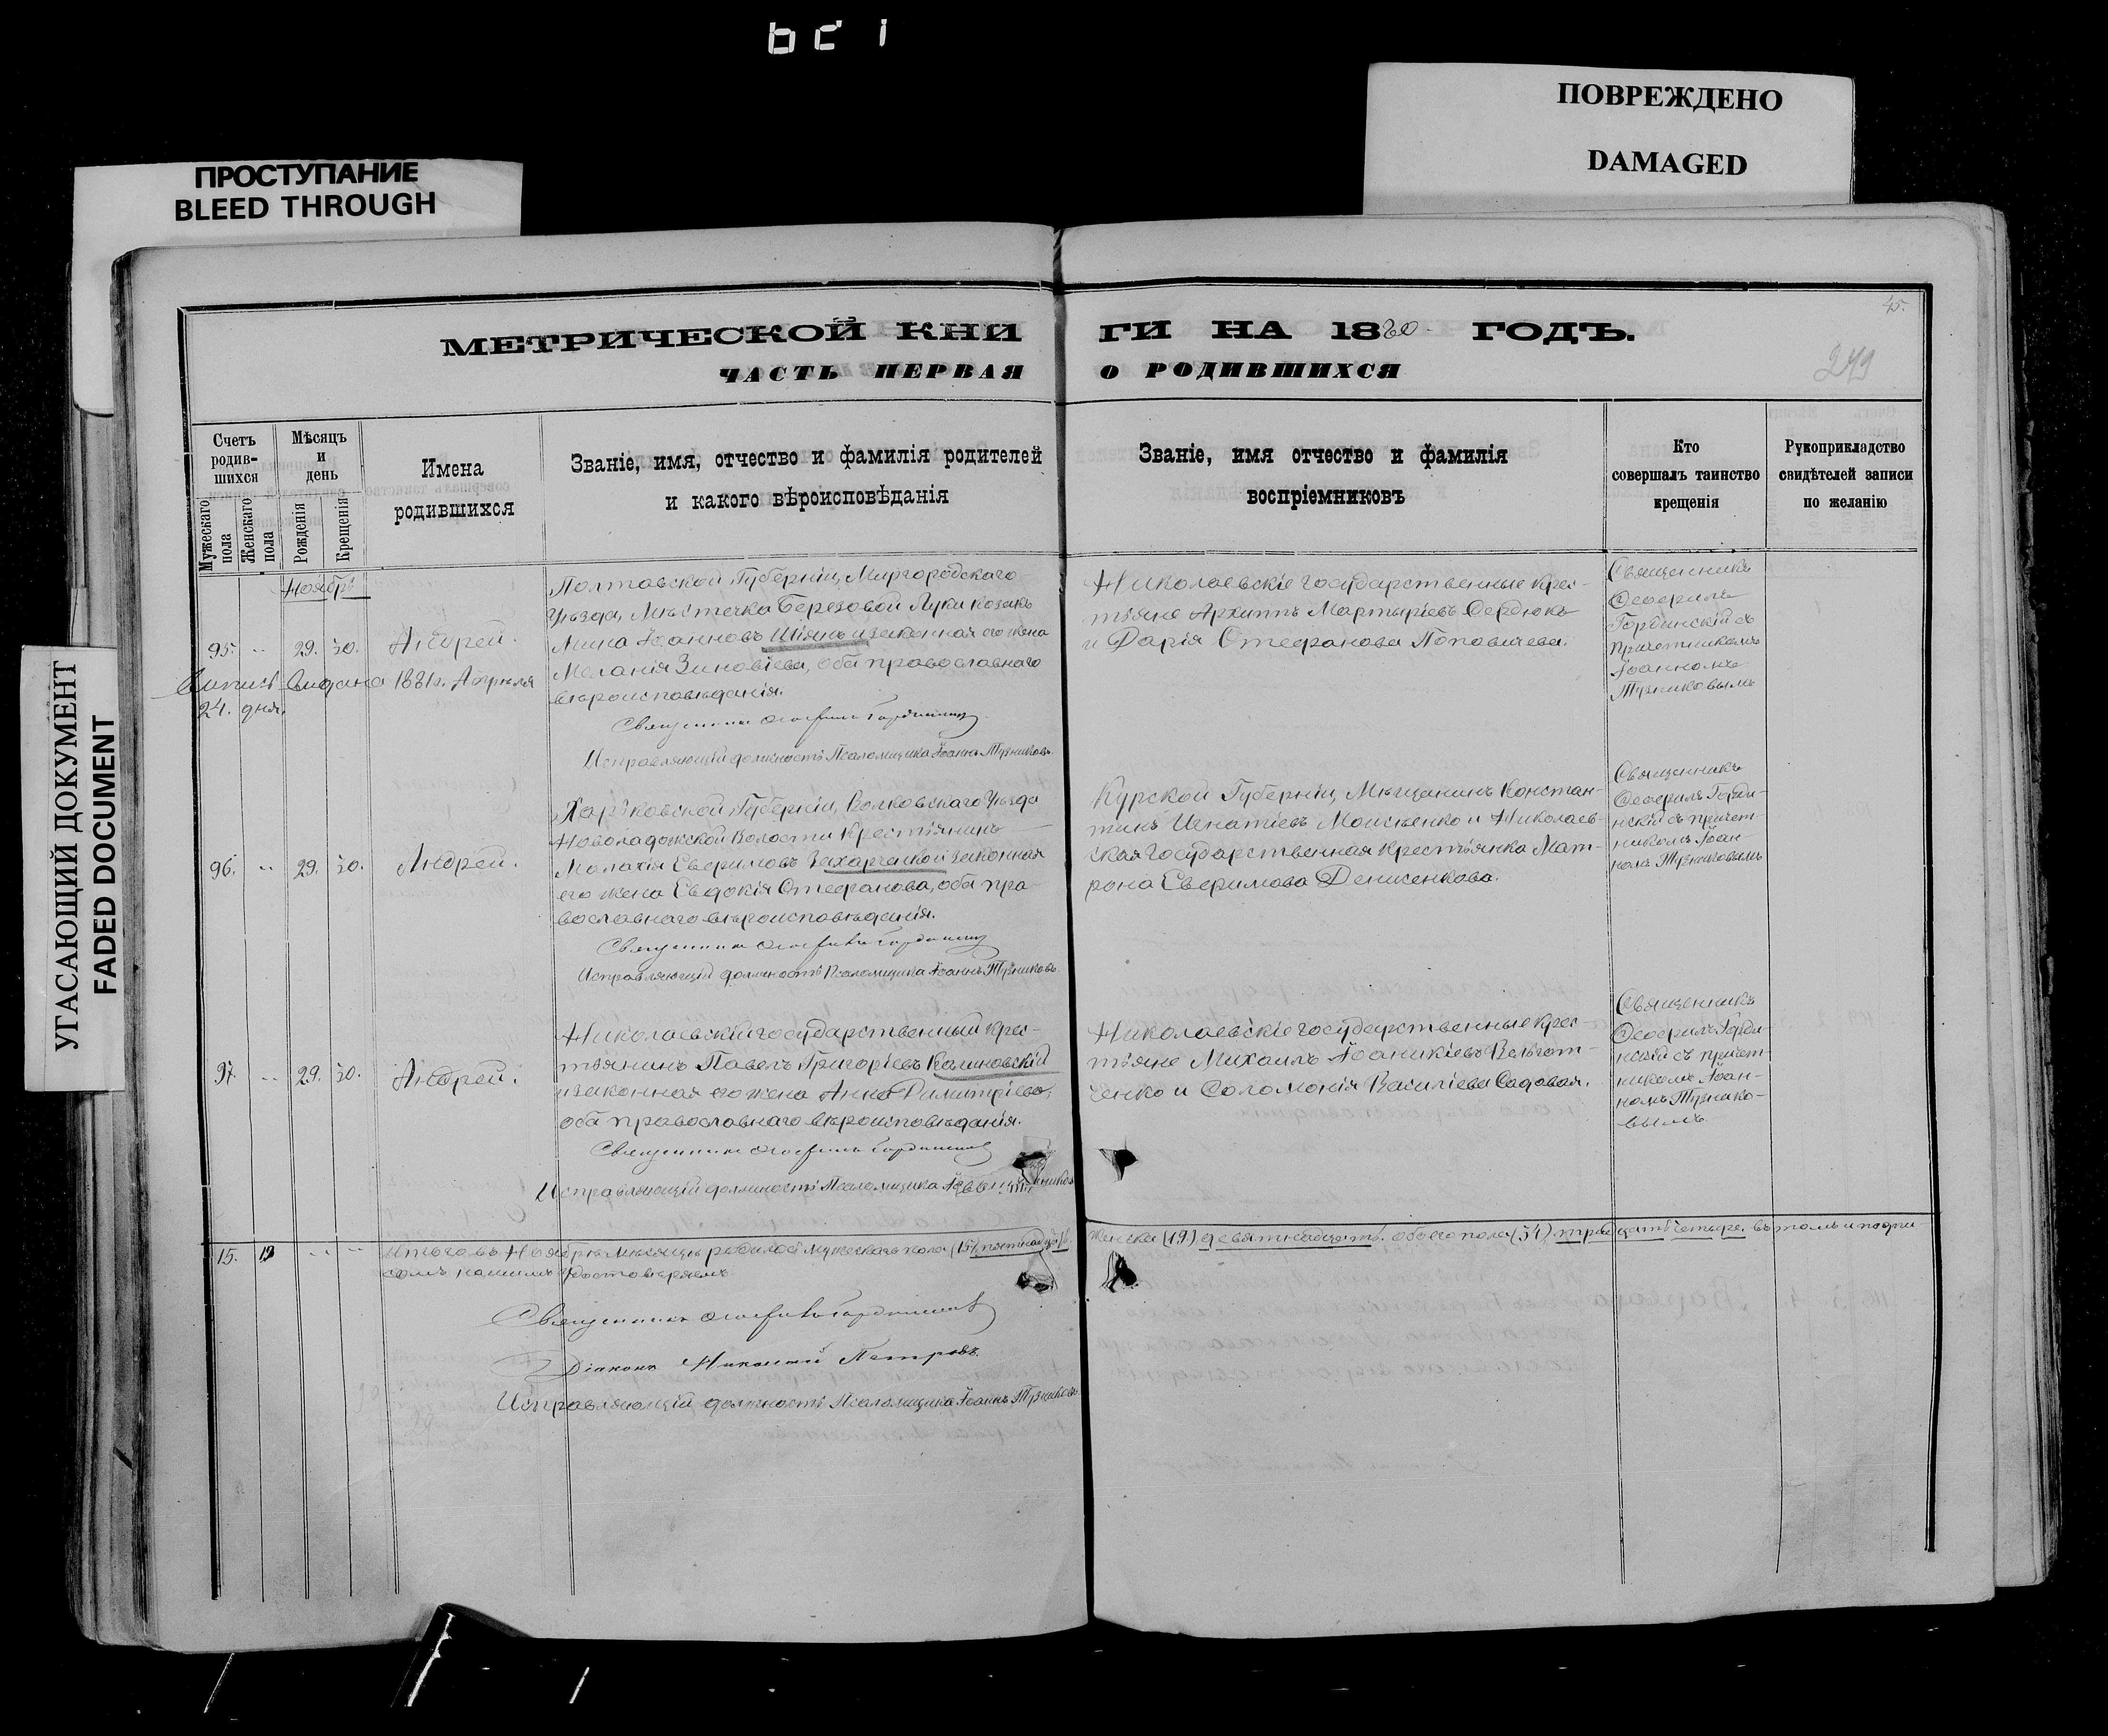 ПОВРЕЖДЕНО
DAMAGED
ПРОСТУПАНИЕ
BLEED THROUGH
УГАСАЮЩИЙ ДОКУМЕНТ
FADED DOCUMENT
45.
МЕТРИЧЕСКОЙ КНИ ГИ НА 1880 ГОДЪ.
ЧАСТЬ ПЕРВАЯ О РОДИВШИХСЯ
249
Счетъ родив-шихся
Мужескаго пола
Женскаго пола
Мѣсяцъ и день
Рожденія
Крещенія
Имена родившихся
Званіе, имя, отчество и фамилія родителей
и какого вѣроисповѣданія
Званіе, имя отчество и фамилія
воспріемниковъ
Кто
совершалъ таинство
крещенія
Рукоприкладство
свидѣтелей записи
по желанію
Ноябрь
95. " 29. 30. Андрей.
Полтавской Губерніи, Миргородскаго
Уѣзда, Мѣстечка Березовой Луки козакъ
Мина Іоанновъ Шіянъ и законная его жена
Меланія Зиновіева, оба православнаго
вѣроисповѣданія.
Выпись выдана 1881г. Апрѣля
24. дня.
Священникъ
Исправляющій должность Псаломщика Іоаннъ Тузниковъ
Николаевскіе государственные крес-
тьяне Архиппъ Мартыріевъ Сердюкъ
и Дарія Стефанова Поповичева.
Священникъ
причетникомъ
Іоанномъ
Тузниковымъ
96. " 29. 30. Андрей.
Харьковской Губерніи, Волковскаго Уѣзда
Новоладожской Волости Крестьянинъ
Малахія Евфимовъ законная
его жена Евдокія Стефанова, оба пра-
вославнаго вѣроисповѣданія.
Священникъ
Исправляющій должность Псаломщика Іоаннъ Тузниковъ
Курской Губерніи, Мѣщанинъ Констан-
тинъ Игнатіевъ Моисѣенко и Николаев-
ская государственная крестьянка Мат-
рона Евфимова Денисенкова.
Священникъ
нскій съ причет-
никомъ Іоан-
номъ Тузниковымъ
97. " 29. 30. Андрей.
Николаевскій государственный крес-
тьянинъ Павелъ Григоріевъ Калиновскій
и законная его жена Анна Димитріева,
оба православнаго вѣроисповѣданія.
Священникъ
Исправляющій должность Псаломщика
Николаевскіе государственные крес-
тьяне Михаилъ Іоаникіевъ
и Соломонія Василіева Садовая.
Священникъ
нскій съ причет-
никомъ Іоан-
номъ Тузнико-
вымъ.
15. 19 " " Итого въ Ноябрѣ мѣсяцѣ родилось мужескаго пола (15) пятнадцать,
женска (19) девятнадцать. обоего пола (34) тридцать четыре. въ томъ и подпи
сомъ нашимъ удостовѣряемъ
Священникъ
Діаконъ Николай Петровъ.
Исправляющій должность Псаломщика Іоаннъ Тузниковъ